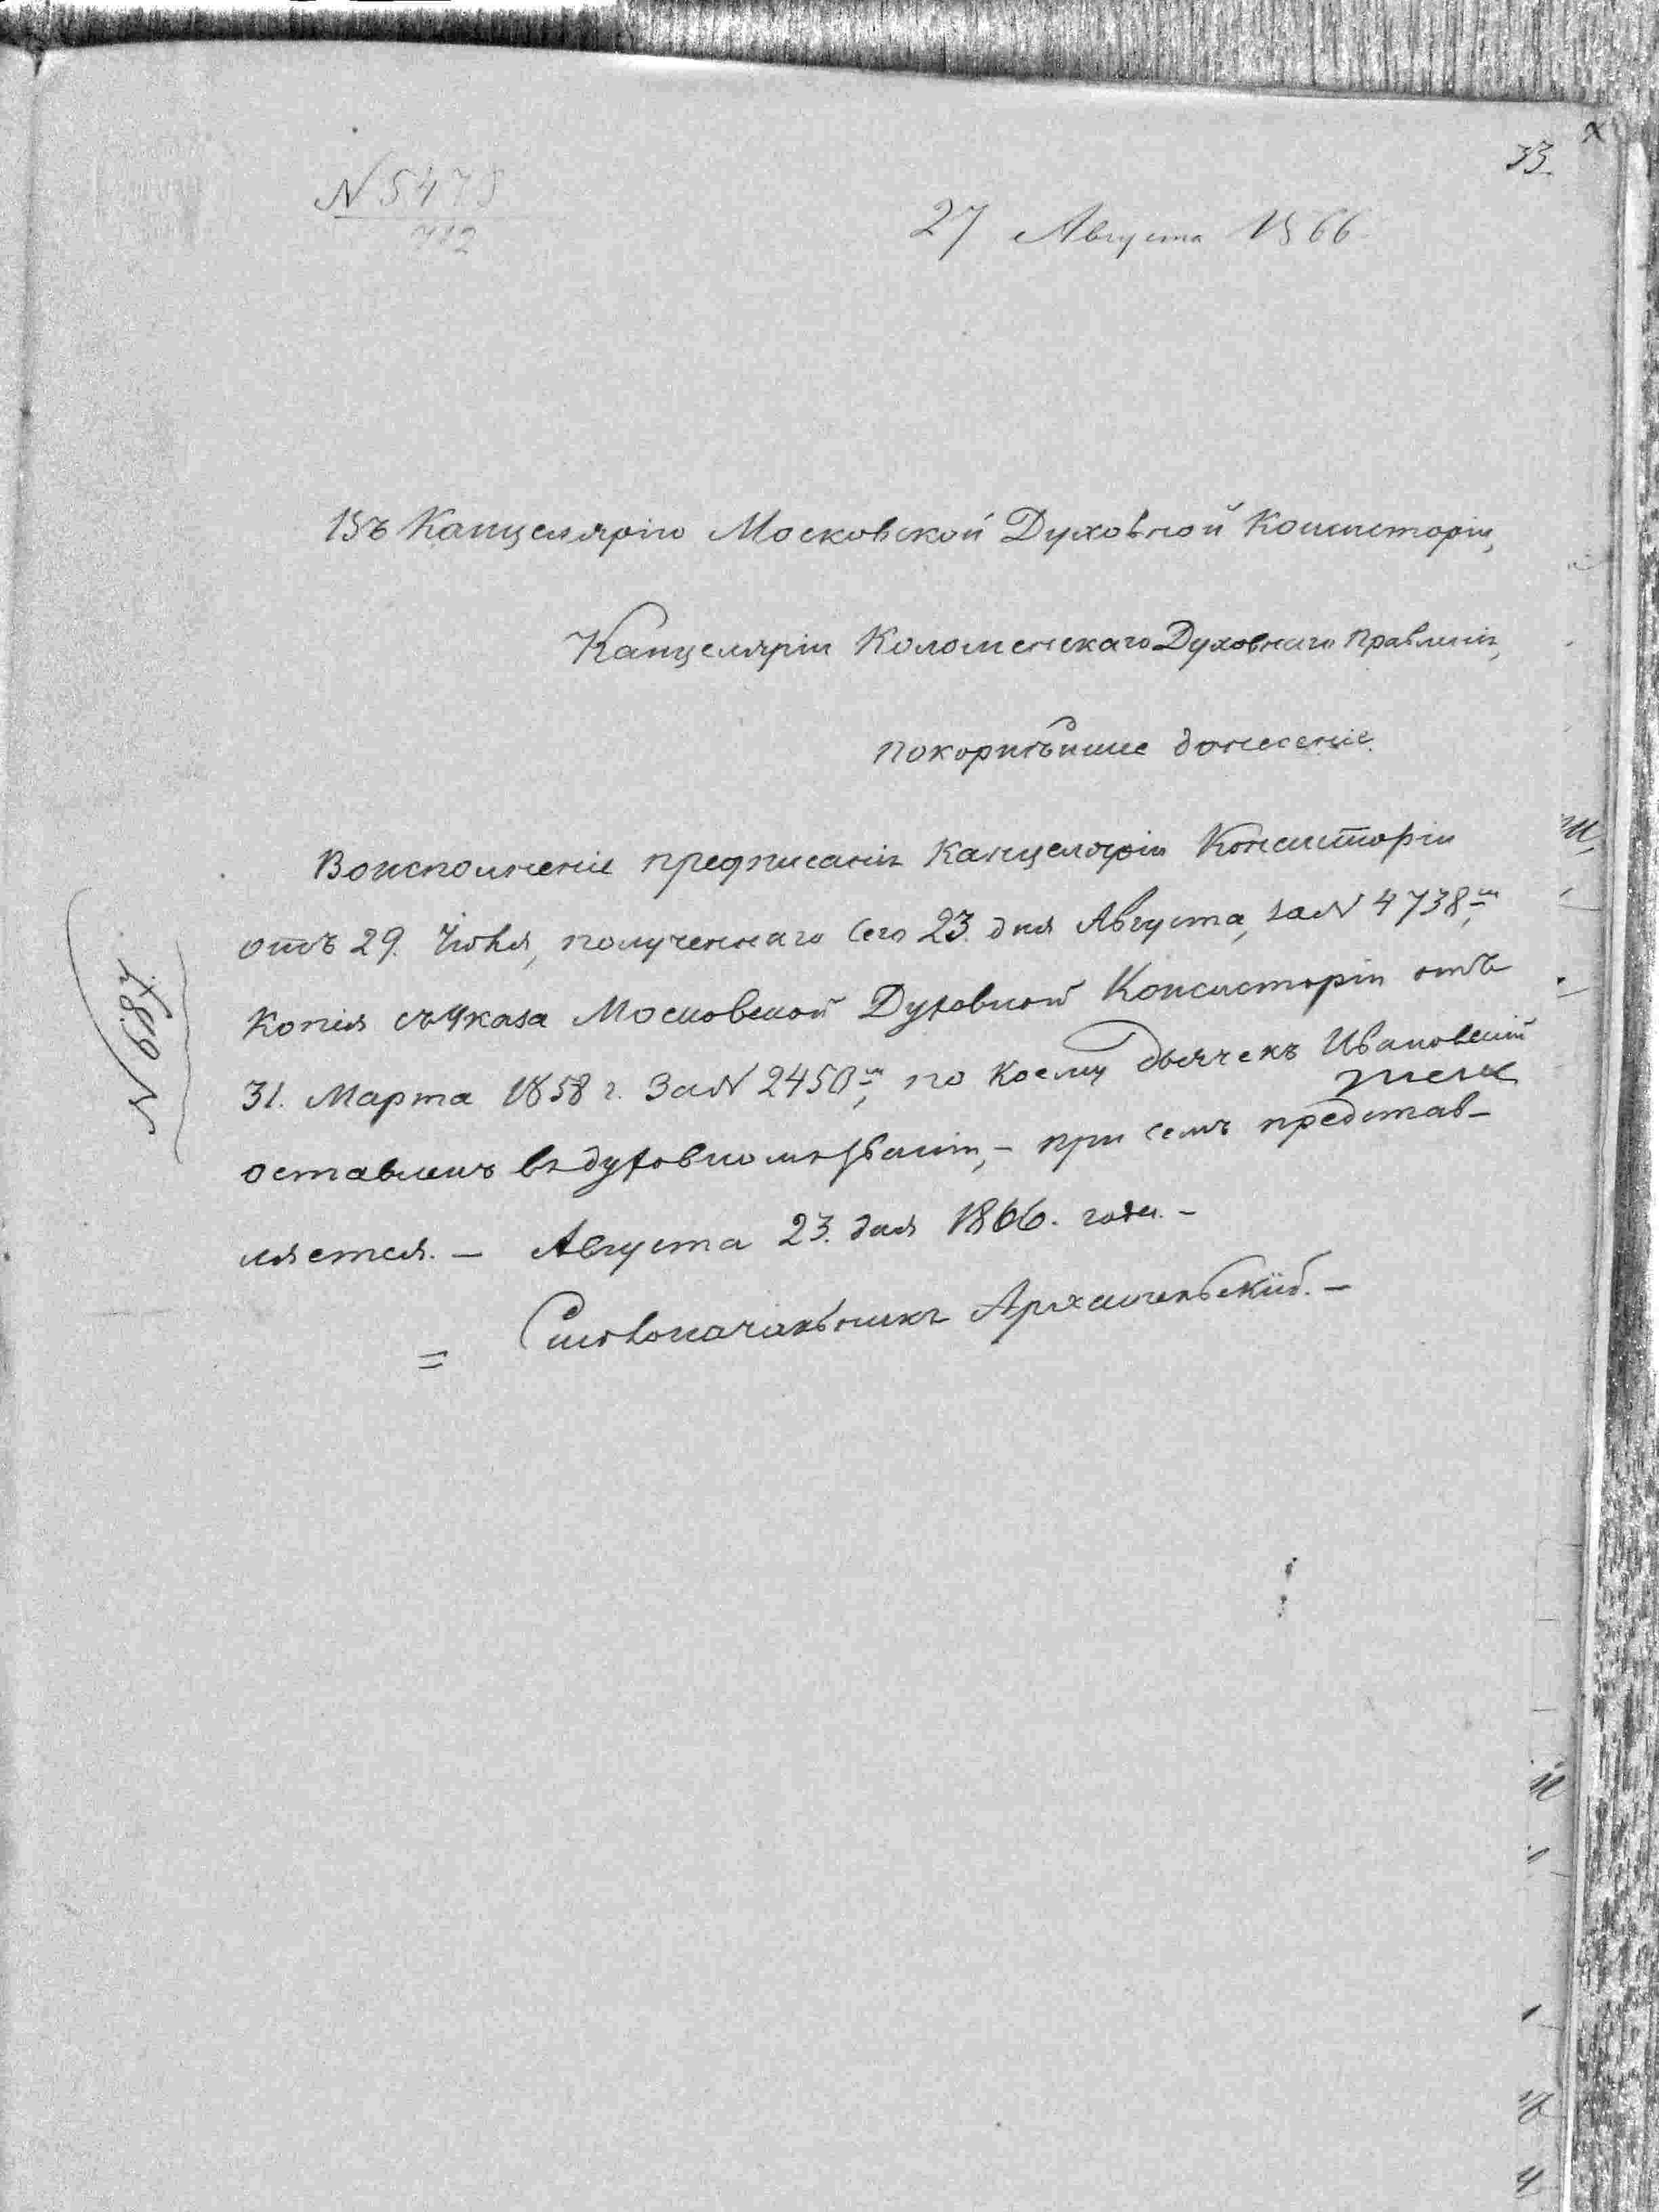 33.
N 5478
712
27 Августа 1866
Въ Канцелярію Московской Духовной Консисторіи,
Канцеляріи Коломенскаго Духовнаго Правленія,
покорнѣйшее донесеніе.
Во исполненіе предписанія Канцеляріи Консисторіи
отъ 29. Іюля, полученнаго сего 23. дня Августа, за N 4738,
Копія съ Указа Московской Духовной Консисторіи отъ
31. Марта 1858 г. За N 2450, по коему дьячекъ Ивановскій
оставленъ въ духовномъ званіи, - при семъ представ-
ляется. - Августа 23. дня 1866. года. -
Столоначальникъ Архангельскій. -
N 687.